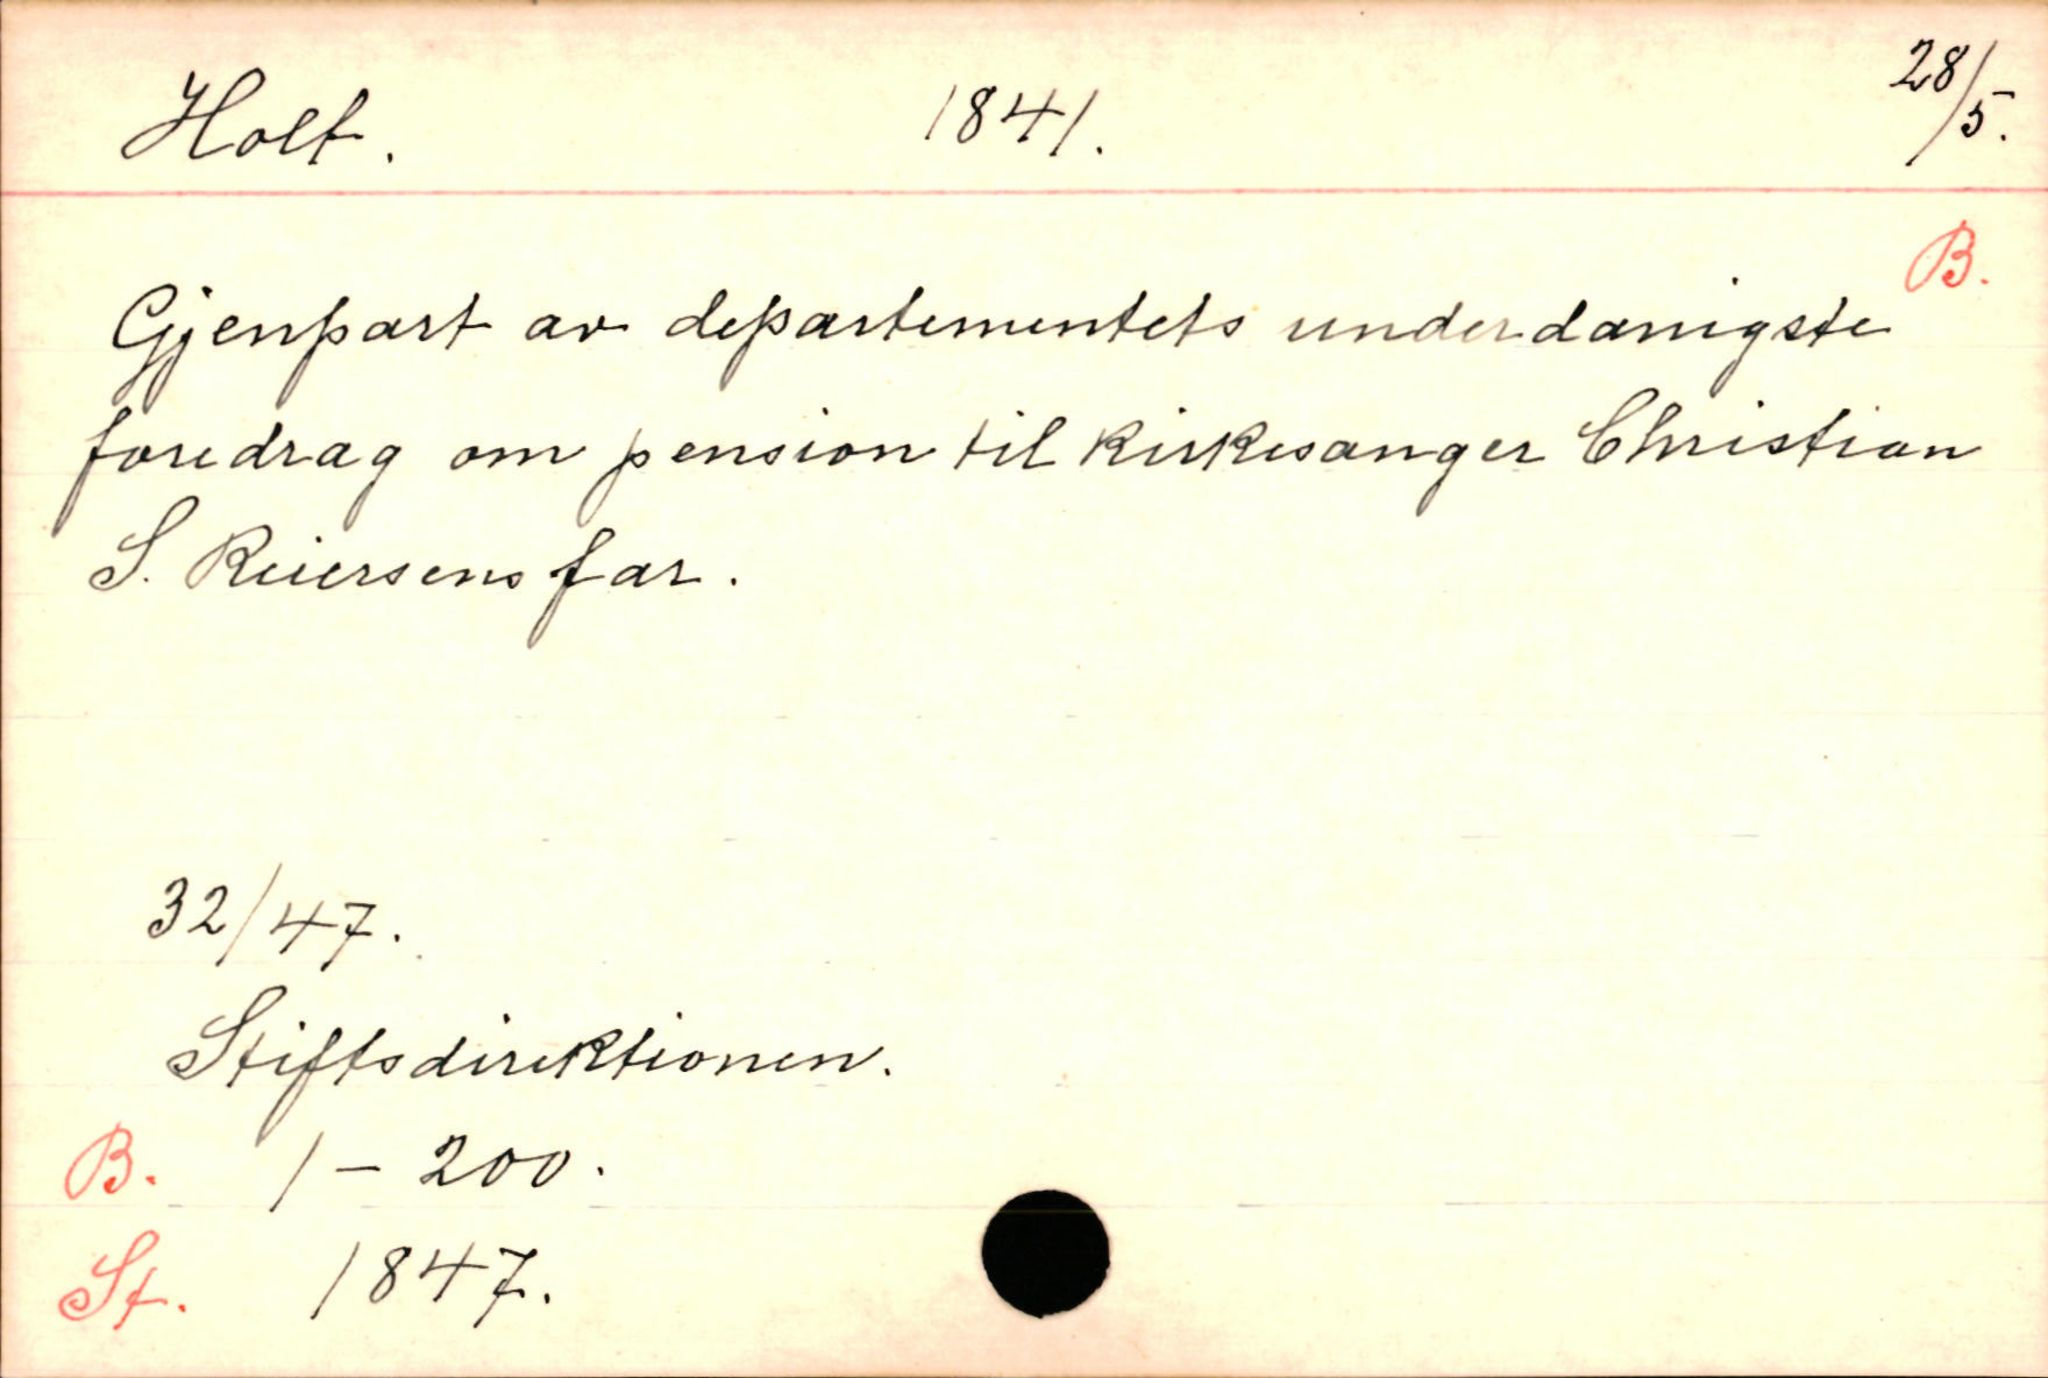 Holt. 1841. 28/5.
B.
Gjenpart av departementets underdanigste
foredrag om pension til kirkesanger Christian
S. Reiersens far.
32/47.
Stiftsdirektionen.
B. 1 - 200.
St. 1847.